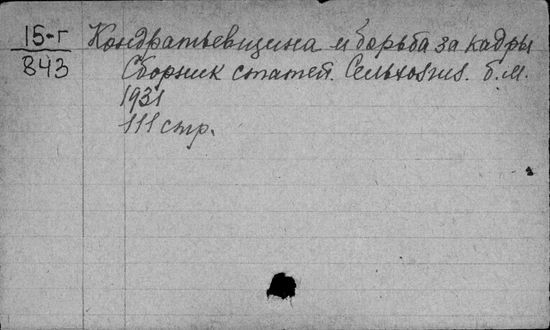 15-г
843
Кондратьевщина и борьба за кадры
Сборник статей. Сельхозгиз. б.м.
1931
111 стр.